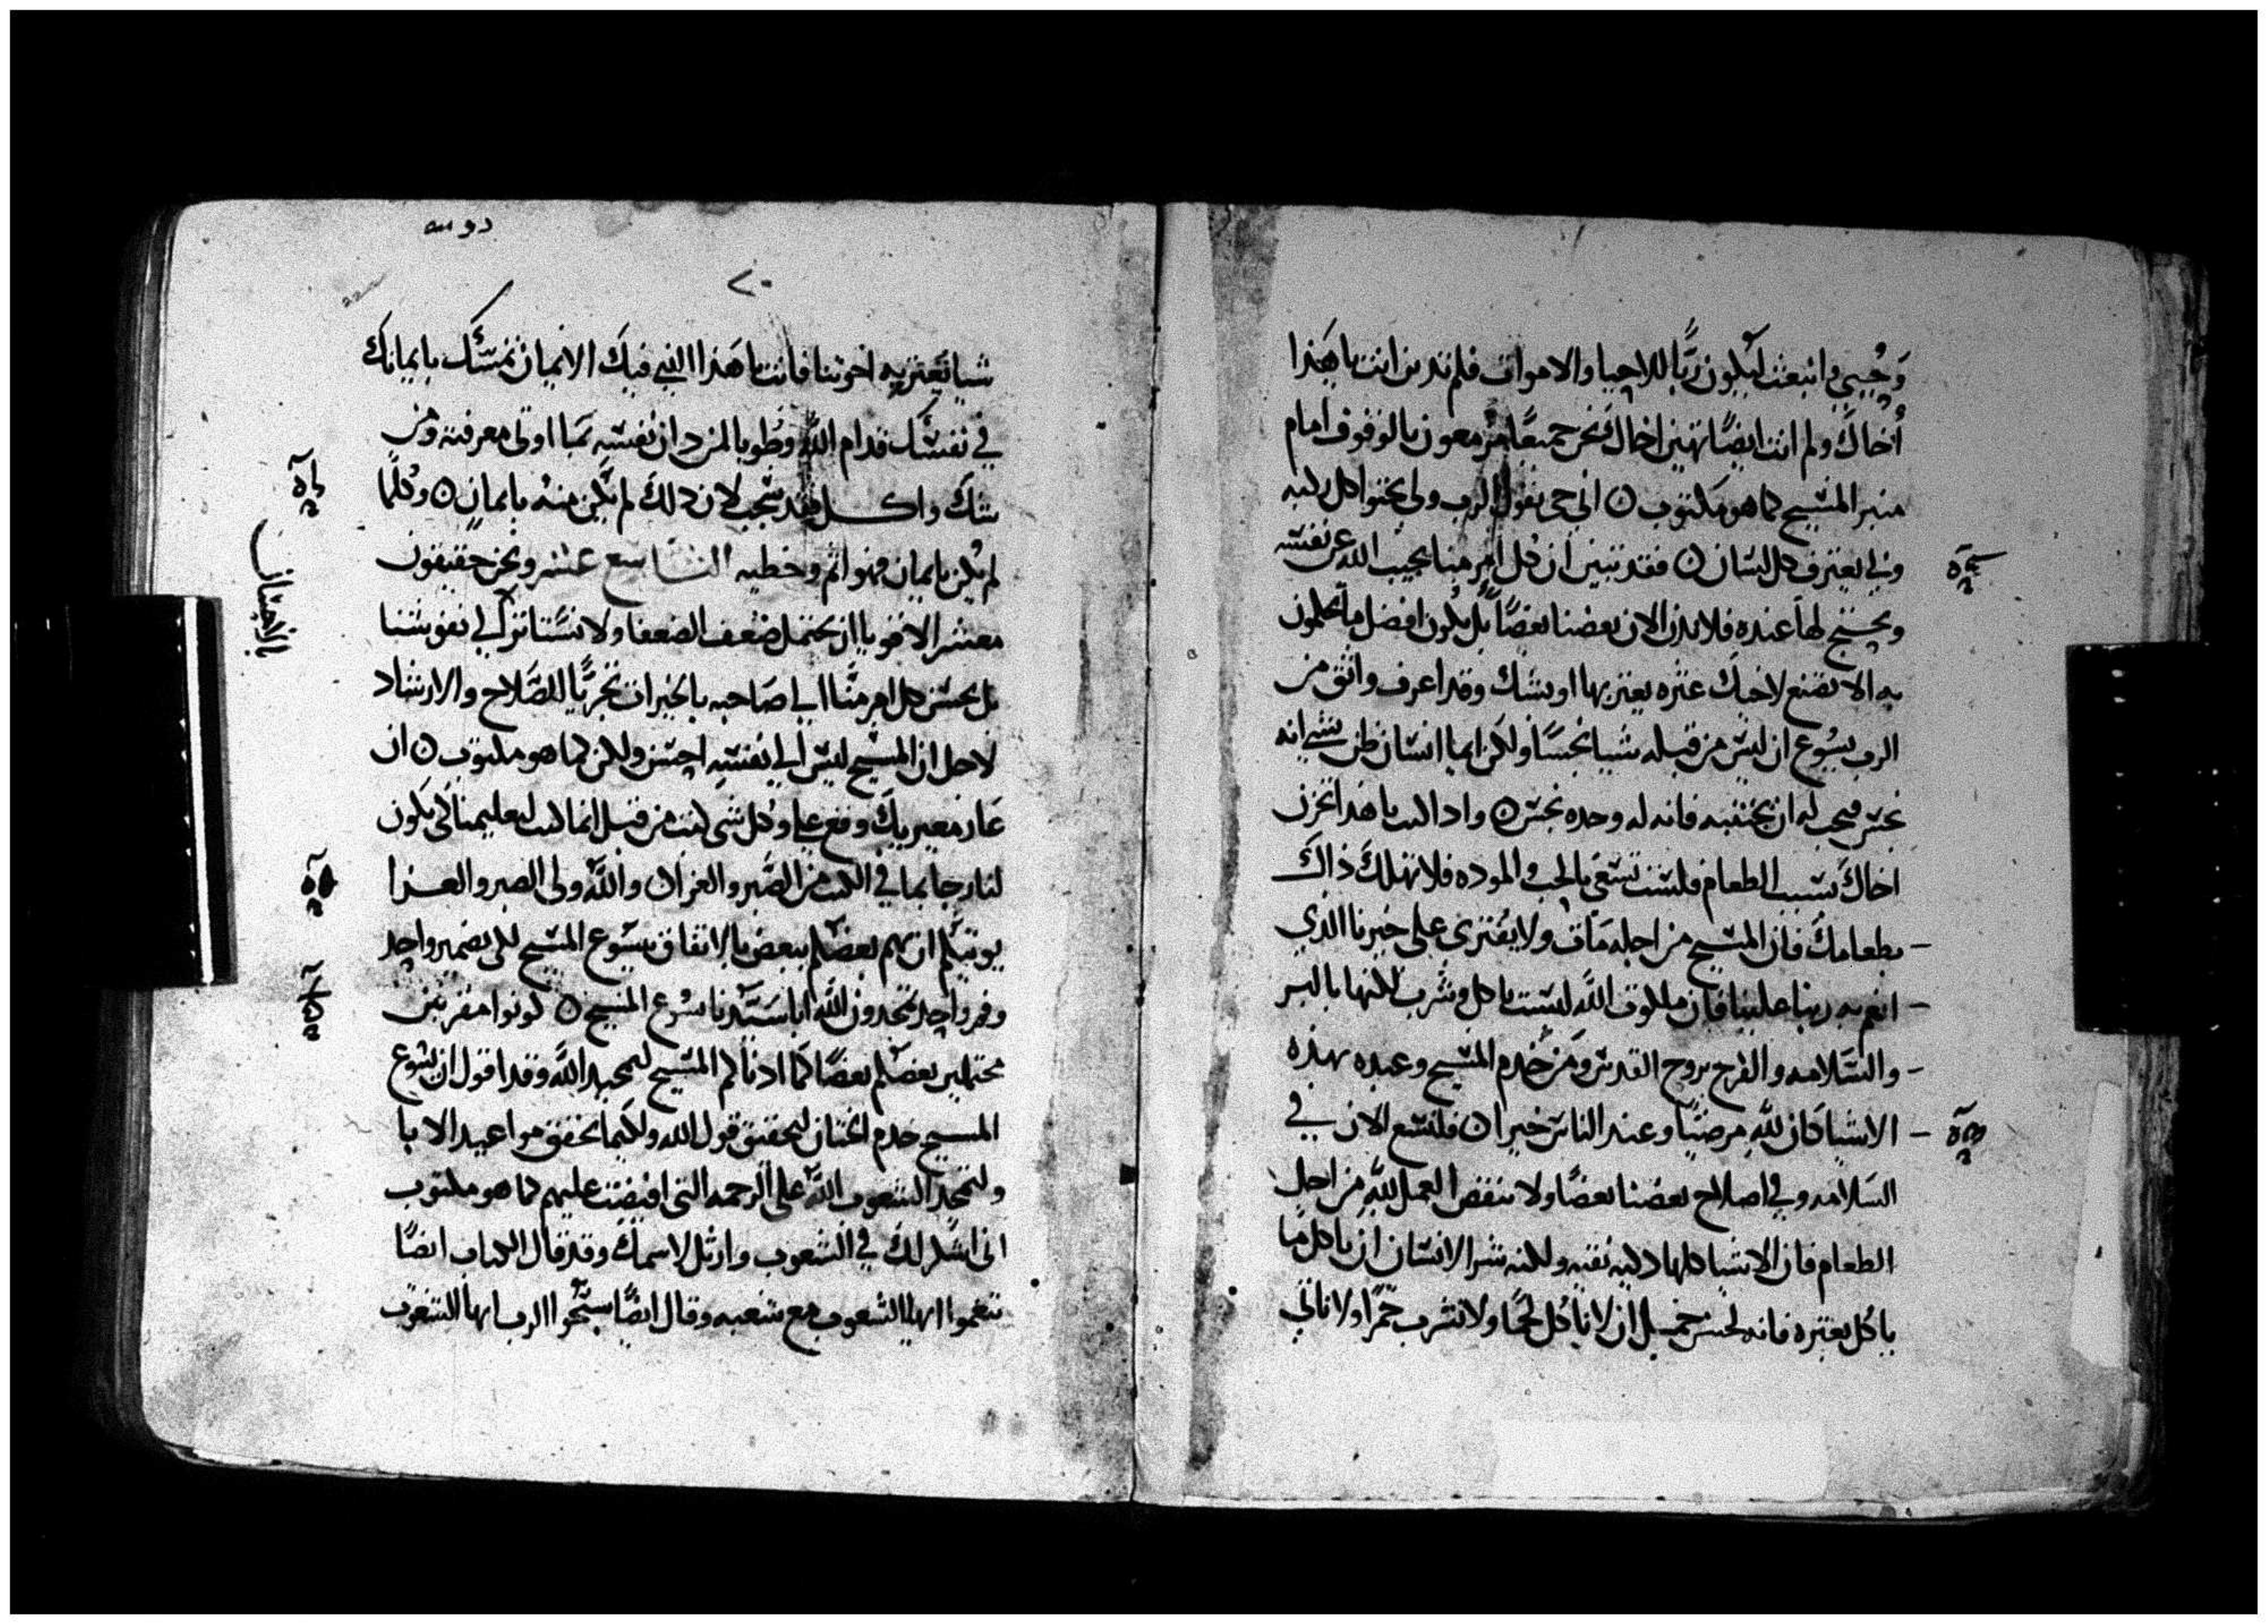 وَحُيِيَ وانبعث ليكون ربًّا للاحيا والاموات فلم تدين انت يا هَذا
أخاكَ ولم انت ايضًا تهين اخاكَ نحن جميعًا مزمعون بالوقوف امام
منبر المسيح كما هو مكتوب ن اني حي يقول الرب ولي يجثوا كل ركبه
ولي يعترف كل لسان ن فقد تبين ان كل امر منا يجيب الله عن نفسه
ويحتج لها عنده فلا يدن الان بعضنا بعضًا بل يكون افضل ما تحكمون
به الا تضع لاخيك عثره يعثر بها او يشك وقد اعرف واثق من
الرب يسوع ان ليس من قبله شيا نجسًا ولكن ايما انسان ظن بشي انه
نجس فيجب له ان يجتنبه فانه له وحده نجس ن واذا كنت يا هذا تحزن
اخاكَ بسبب الطعام فلست تسعَى بالحب والموده فلا تهلكَ ذاكَ
بطعامكَ فان المسيح من اجله مَات ولا يفترى على خيرنا الذي
انعم به ربنا علينا فان ملكوت الله ليست باكل وشرب لكنها بالبر
والسَّلامه والفرح بروح القدس ومَن خدم المسيح وعبده بهذه
الاشيا كان لله مرضيًا وعند الناس خيرا ن فلنسع الان في
السَلامه وفي اصلاح بعضنا بعضًا ولا ننقض العمل لله من اجل
الطعام فان الاشيا كلها ذكيه نقيه ولكنه شر الانسان ان ياكل ما
ياكل بعثره فانه لحسن جميل ان لا ناكُل لحمًا ولا نشرب خمرًا ولا ناتي
٢٠
شيا تعثر به اخوتنا فانت يا هَذا الذي فيكَ الايمان تمسّك بايمانك
في نفسك قدام الله وطُوبا لمن دان نفسه بما اوتى معرفته ومن
شك واكل فقد شجب لان ذلكَ لم يكن منه بايمان ن وكلما
لم يكن بايمان فهو اثم وخطيه التاسع عشر ونحن حقيقون
معشر الاقويا ان نحتمل ضعف الضعفا ولا نستاثر الي نفوسنا
بل يحسن كل امر منَّا الي صَاحبه بالخيرات تحريًا للصَّلاح والارشاد
لاجل ان المسيح ليس الي نفسه احسن ولكن كما هو مكتوب ن ان
عَار معيريكَ وقع علي وكل شي كتب من قبل انما كتب لتعليمنا لكي يكون
لنا رجا بما في الكتب من الصَّبر والعزا ن واللَّه ولى الصبر والعزا
يوتيكم ان تهم بعضكم ببعض بالاتفاق بيسوع المسيح لكي بضمير واحد
وفم واحد تمجدون اللَّه ابا سَيّدنا يسوع المسيح ن كونوا مقربين
محتملين بعضكم بعضًا كما ادناكم المسيح لمجد الله وقد اقول ان يسُوع
المسيح خدم الختان لتحقيق قول الله ولكيما يحقق مواعيد الابا
ولتمجد الشعوب اللَّه على الرحمه التى افيضت عليهم كما هو مكتوب
انى اشكر لك في الشعوب وارتل لاسمكَ وقد قال الكتاب ايضًا
تنعموا ايها الشعوب مع شعبه وقال ايضًا سبّحُوا الرب ايها الشعوب